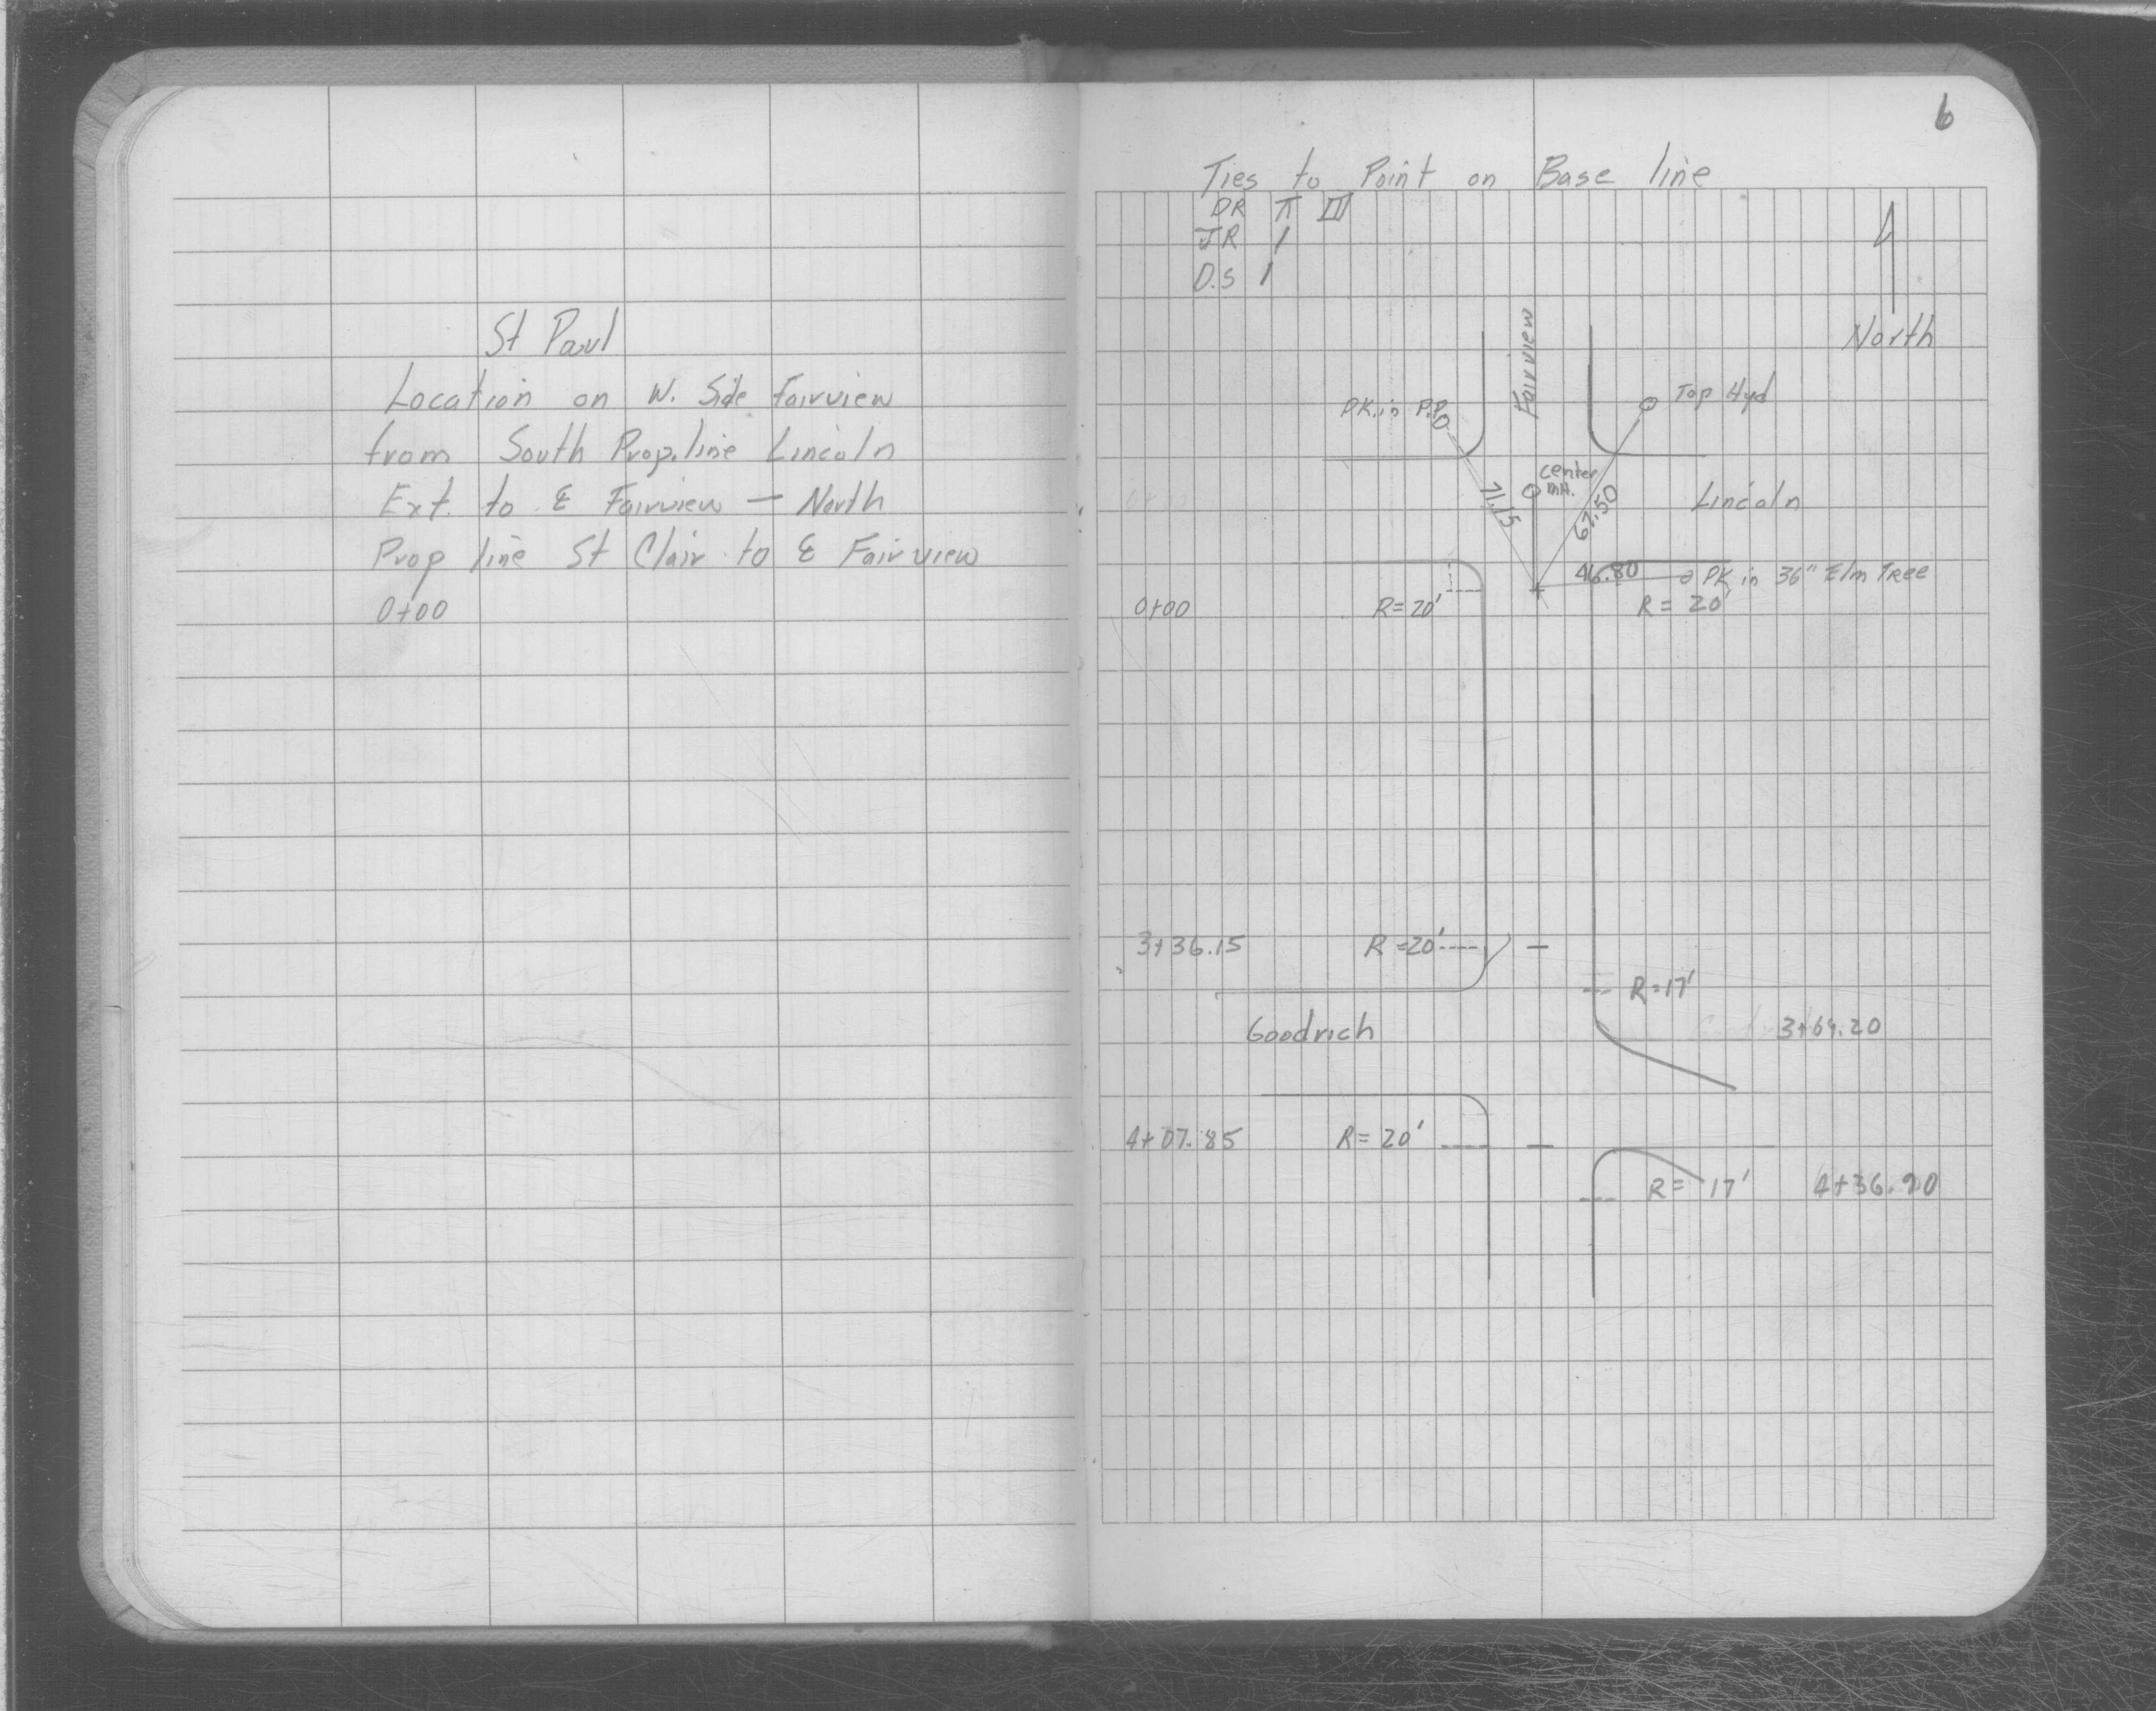 St Paul
Location on W. Side Fairview
from South Prop. line Lincoln
Ext. to ℄ Fairview — North
Prop line St Clair to ℄ Fairview
0+00
6
Ties to Point on Base line
DR π III
JR /
D.S /
North
Fairview
PK. in P.P.
Top Hyd
center
M.H.
71.15
67.50
Lincoln
46.80
PK in 36" Elm Tree
0+00
R=20'
R= 20'
3+36.15
R=20'
R=17'
Goodrich
3+69.20
4+07.85
R= 20'
R= 17'
4+36.90